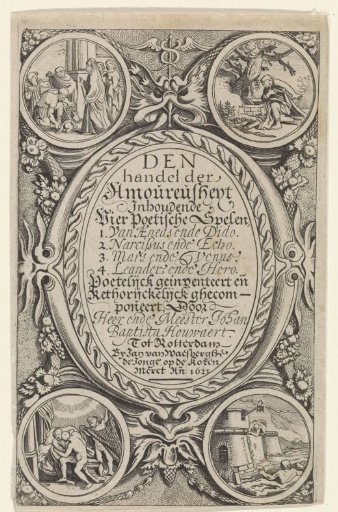 DEN
handel der
Amoureusheyt
Inhoudende
Vier Poetische Spelen
1. Van Æneas ende Dido.
2. Narcissus ende Echo.
3. Mars ende Venus.
4. Leander ende Hero.
Poetelyck geinventeert en
Rethorijckelijck ghecom-
poneert. Door
Heer ende Meester Johan
Baptista Houwaert.
Tot Rotterdam
By Jan van Waesberghe
de Jonge op de Koren
Merct An 1621